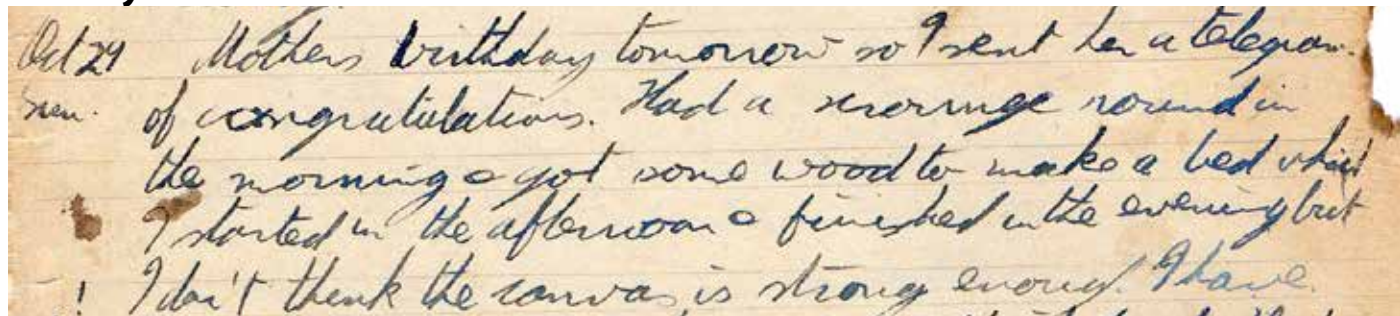 Oct 29 Mothers birthday tomorrow so I sent her a telegram
Sun. of congratulations. Had a scrounge round in
the morning & got some wood to make a bed which
I started in the afternoon & finished in the evening but
! I don't think the canvas is strong enough. I have